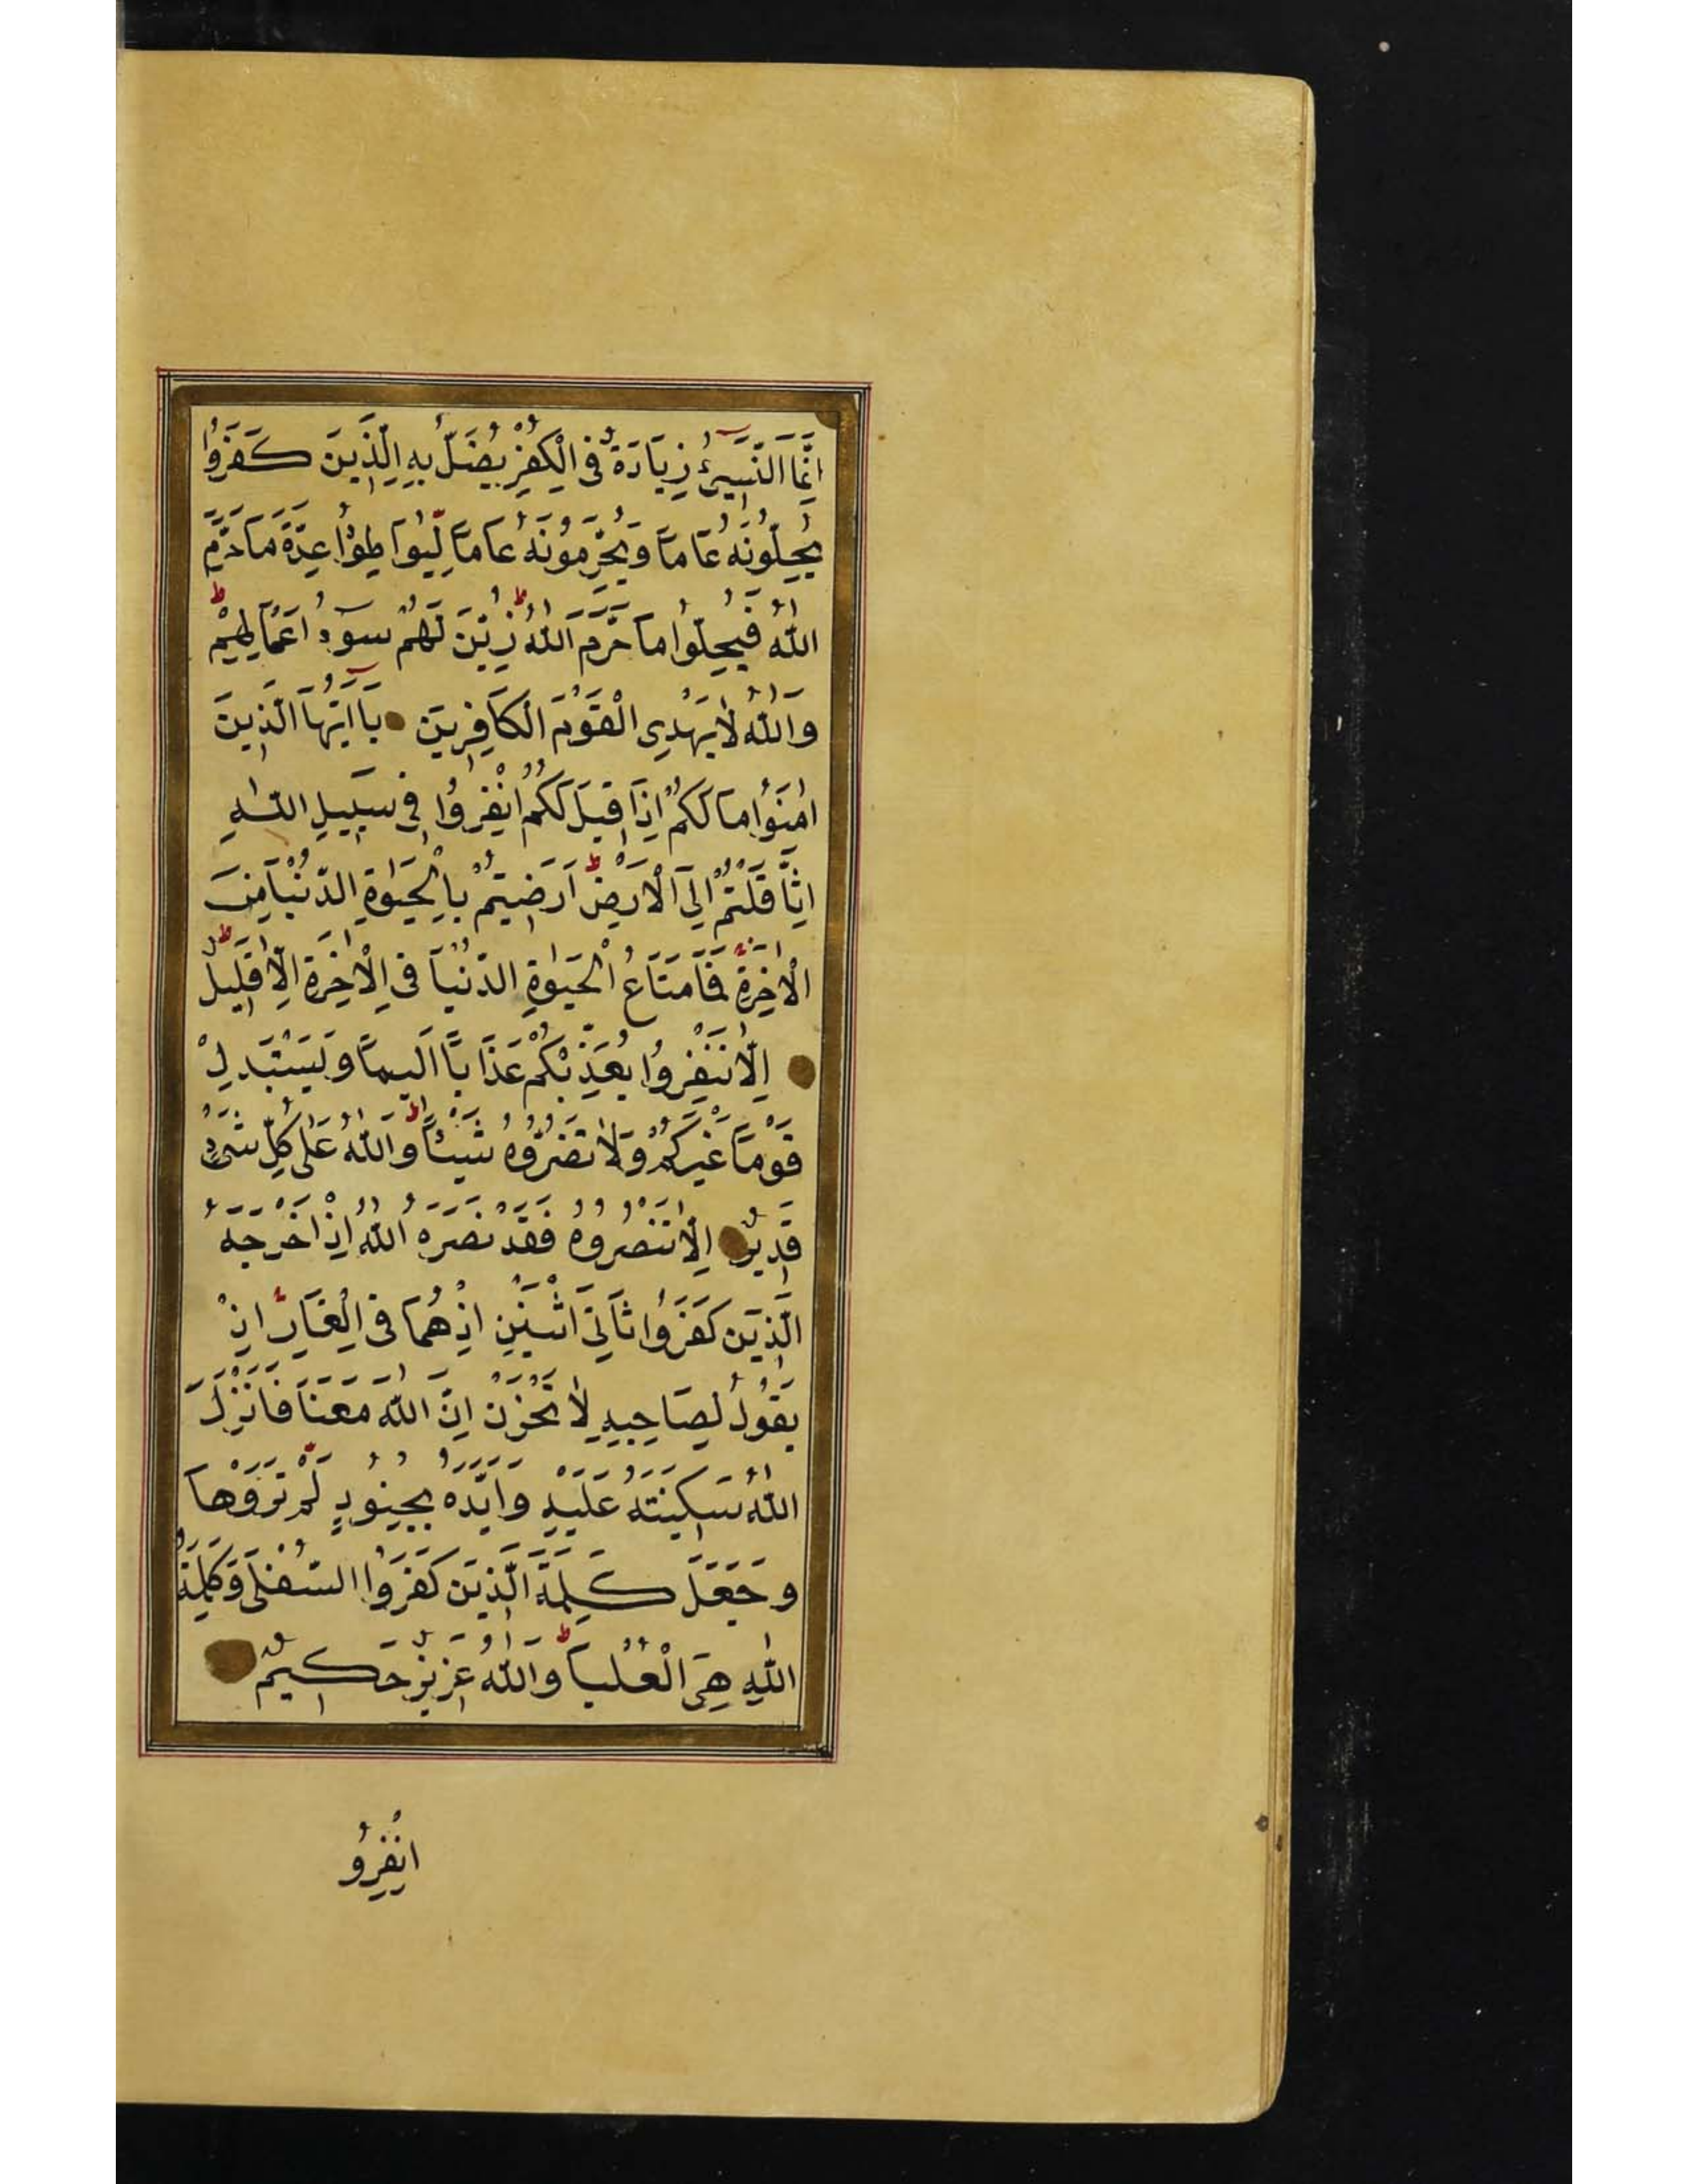 اِنَّمَا النَّسِيءُ زِيَادَةٌ فِي الْكُفْرِ يُضَلُّ بِهِ الَّذِينَ كَفَرُوا
يُحِلُّونَهُ عَامًا وَيُحَرِّمُونَهُ عَامًا لِيُوَاطِؤُا عِدَّةَ مَا حَرَّمَ
اللّٰهُ فَيُحِلُّوا مَا حَرَّمَ اللّٰهُ ط زُيِّنَ لَهُمْ سُوٓءُ اَعْمَالِهِمْ ط
وَاللّٰهُ لَا يَهْدِي الْقَوْمَ الْكَافِرِينَ يَآ اَيُّهَا الَّذِينَ
اٰمَنُوا مَا لَكُمْ اِذَا قِيلَ لَكُمُ انْفِرُوا فِي سَبِيلِ اللّٰهِ
اثَّاقَلْتُمْ اِلَى الْاَرْضِ ط اَرَضِيتُمْ بِالْحَيٰوةِ الدُّنْيَا مِنَ
الْاٰخِرَةِ فَمَا مَتَاعُ الْحَيٰوةِ الدُّنْيَا فِي الْاٰخِرَةِ اِلَّا قَلِيلٌ ط
اِلَّا تَنْفِرُوا يُعَذِّبْكُمْ عَذَابًا اَلِيمًا وَيَسْتَبْدِلْ
قَوْمًا غَيْرَكُمْ وَلَا تَضُرُّوهُ شَيْئًا ط وَاللّٰهُ عَلٰى كُلِّ شَيْءٍ
قَدِيرٌ اِلَّا تَنْصُرُوهُ فَقَدْ نَصَرَهُ اللّٰهُ اِذْ اَخْرَجَهُ
الَّذِينَ كَفَرُوا ثَانِيَ اثْنَيْنِ اِذْ هُمَا فِي الْغَارِ اِذْ
يَقُولُ لِصَاحِبِهِ لَا تَحْزَنْ اِنَّ اللّٰهَ مَعَنَا فَاَنْزَلَ
اللّٰهُ سَكِينَتَهُ عَلَيْهِ وَاَيَّدَهُ بِجُنُودٍ لَمْ تَرَوْهَا
وَجَعَلَ كَلِمَةَ الَّذِينَ كَفَرُوا السُّفْلٰى وَكَلِمَةُ
اللّٰهِ هِيَ الْعُلْيَا ط وَاللّٰهُ عَزِيزٌ حَكِيمٌ
انْفِرُو